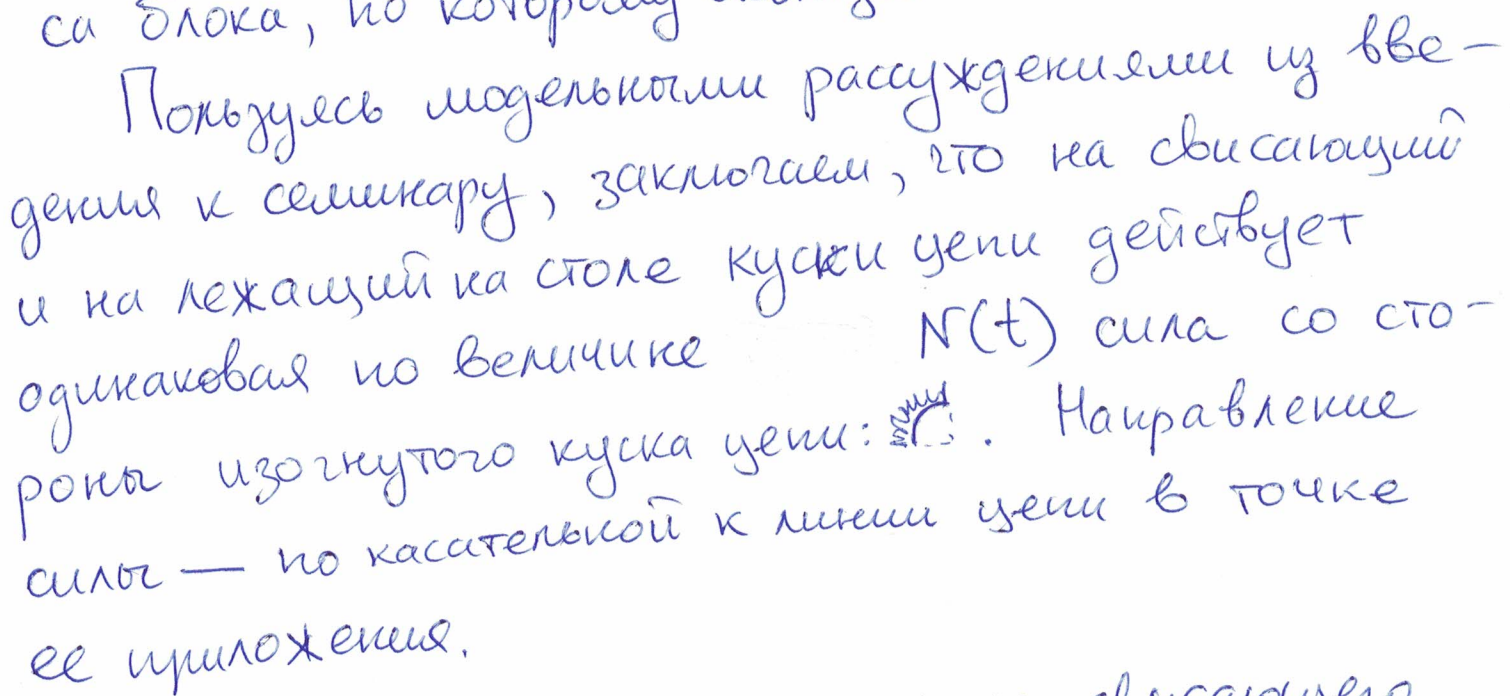 са блока, по которому
Пользуясь модельными рассуждениями из вве-
дения к семинару, заключаем, что на свисающий
и на лежащий на столе куски цепи действует
одинаковая по величине N(t) сила со сто-
роны изогнутого куска цепи: . Направление
силы — по касательной к линии цепи в точке
ее приложения.
свисающего